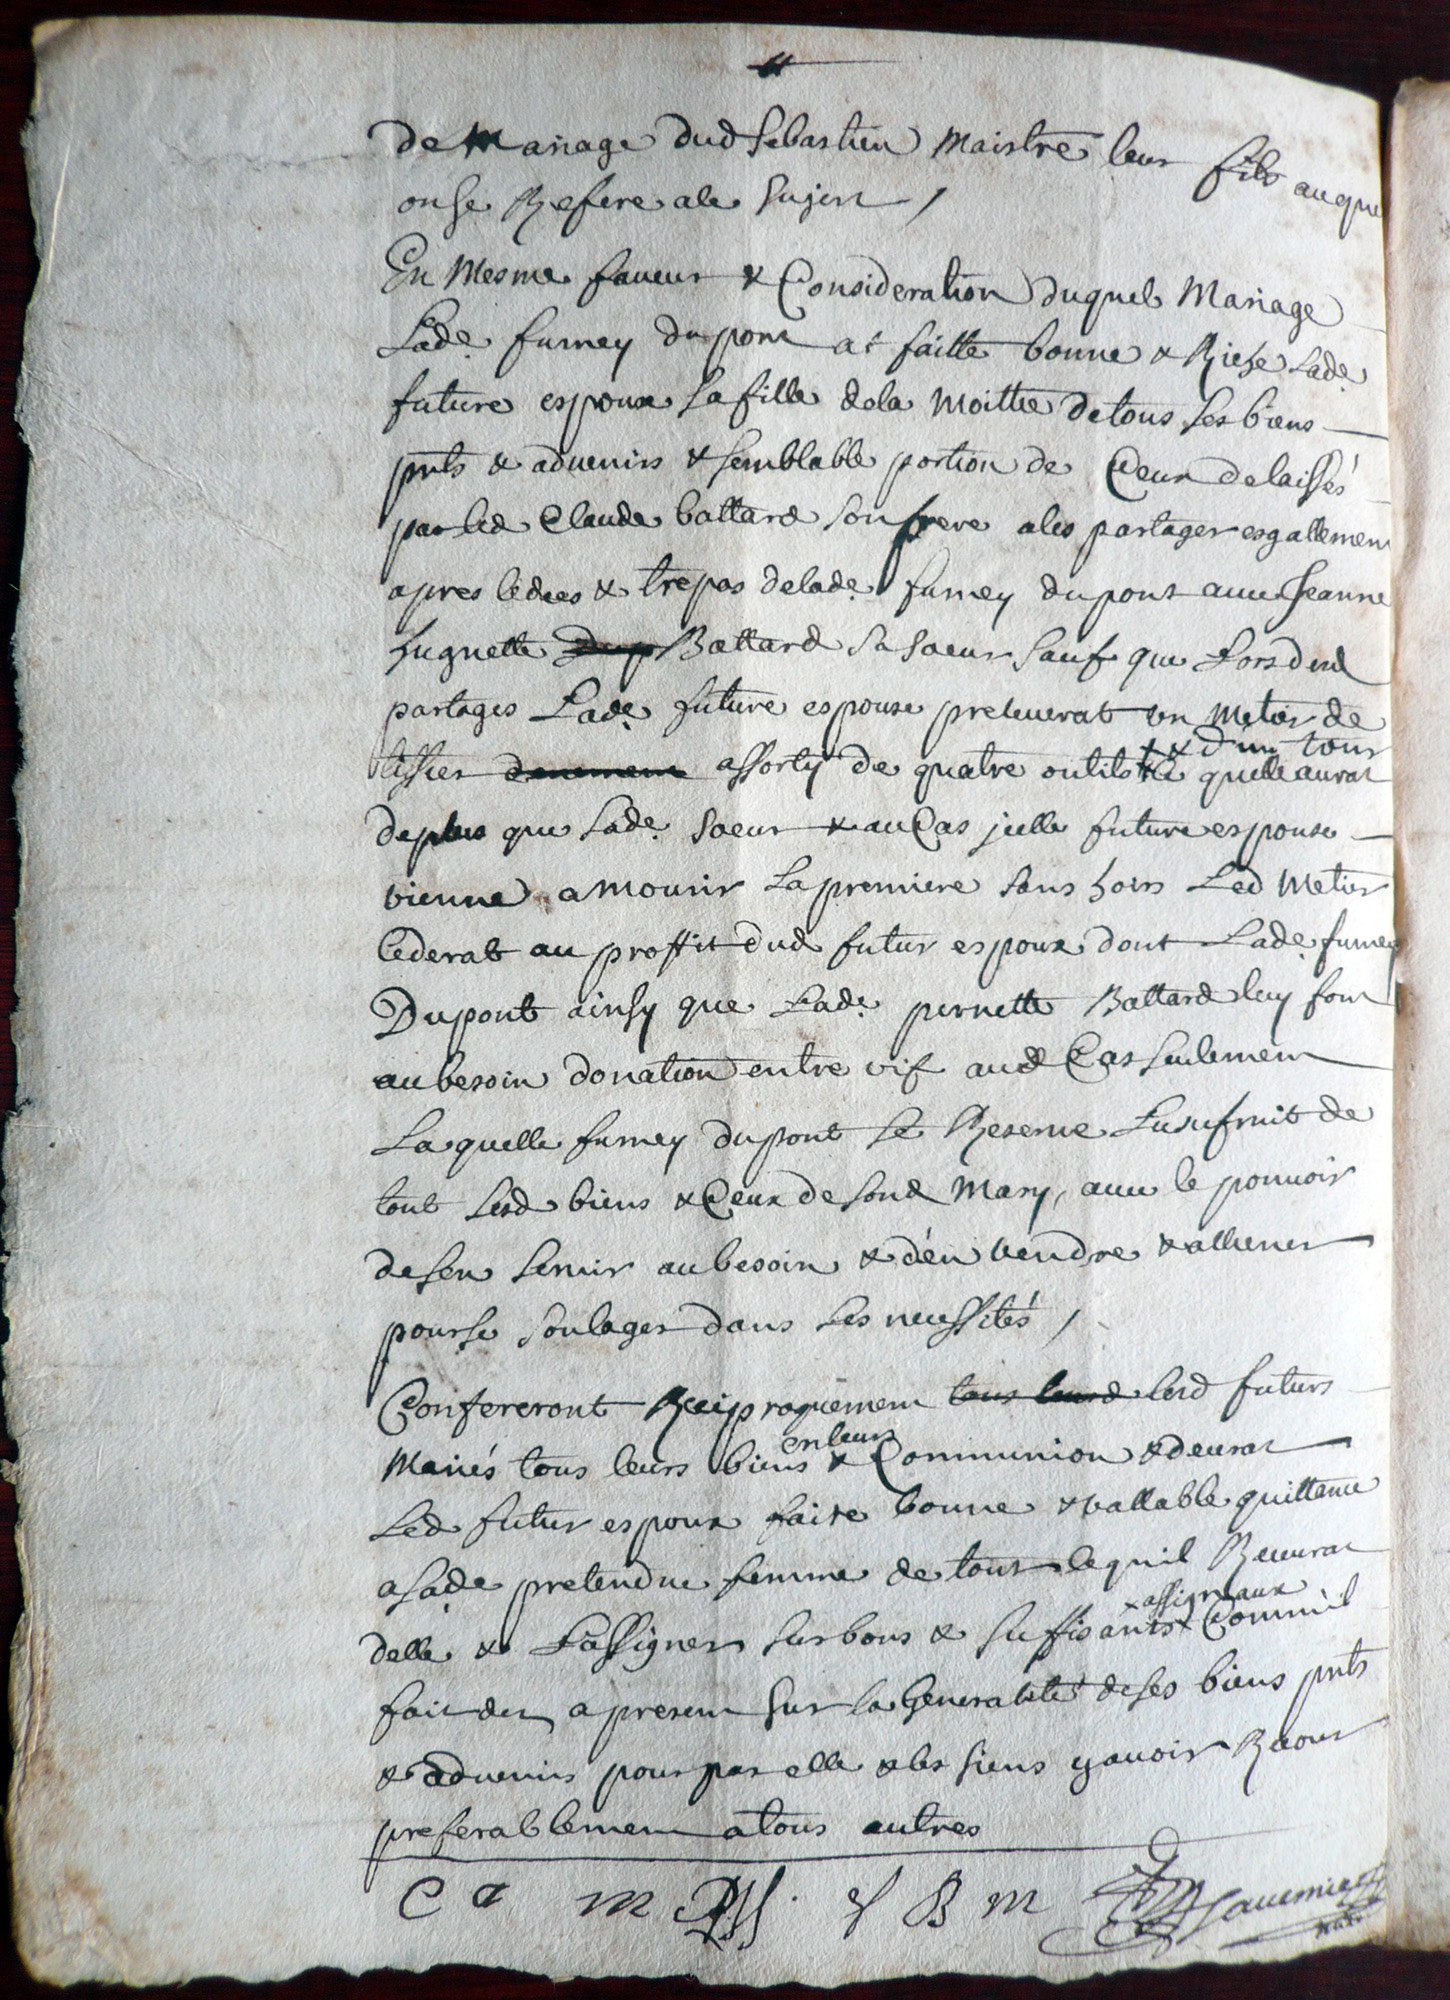 de Mariage dud Sebastien Maistre leur fils auque
on se Refere a le sujest /
En Mesme faveur & Consideration duquel Mariage
Lade. fumey dupont at faitte bonne & Riche Lade.
future espouse sa fille de la Moittié de tous ses biens
pnts & advenirs & semblable portion de Ceux delaissés
par led Claude battard son frere a les partager esgallement
apres le deces & trepas de lade. fumey dupont avec Jeanne
huguette Battard sa soeur sauf que Lors dud
partages Lade. future espouse prelleverat un Metier de
tissier assorty de quatre outils & d'un tour
quelle aurat
de plus que sade. soeur & au Cas jcelle future espouse
vienne a Mourir La premiere sans hoirs Led Metier
Cederat au proffit dud futur espoux dont Lade. fumey
Dupont ainsy que Lade. pernette Battard luy font
au besoin donation entre vif aud Cas seulement
La quelle fumey dupont se Reserve Lusufruit de
tout sesd biens & Ceux de sond Mary, avec le pouvoir
de sen servir au besoin & d'en vendre & alliener
pour se soulager dans ses necessités /
Confereront Reciproquement tous leurd lesd futurs
Mariés tous leurs biens en leurs Communion & devrat
Led futur espoux faire bonne & vallable quittence
a sade pretendue femme de tout ce quil Recevrat
delle & L'assigner sur bons & suffisants assignaux Comm'il
fait des a present sur la Generalité de ses biens pnts
& advenirs pour par elle & les siens y avoir Recour
preferablement a tous autres
C a M B M